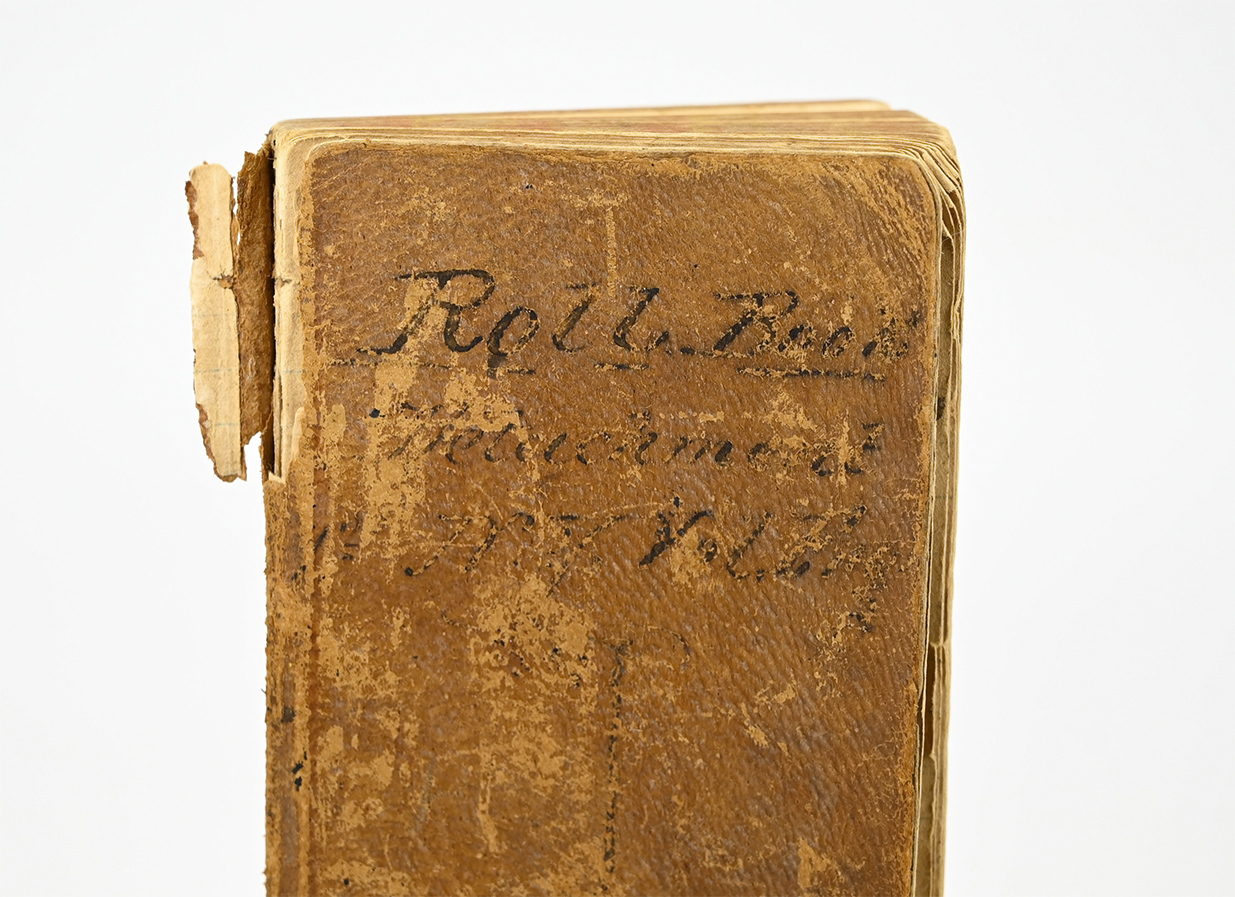 Roll Book
Detachment
1st N.Y. Vol. Eng.